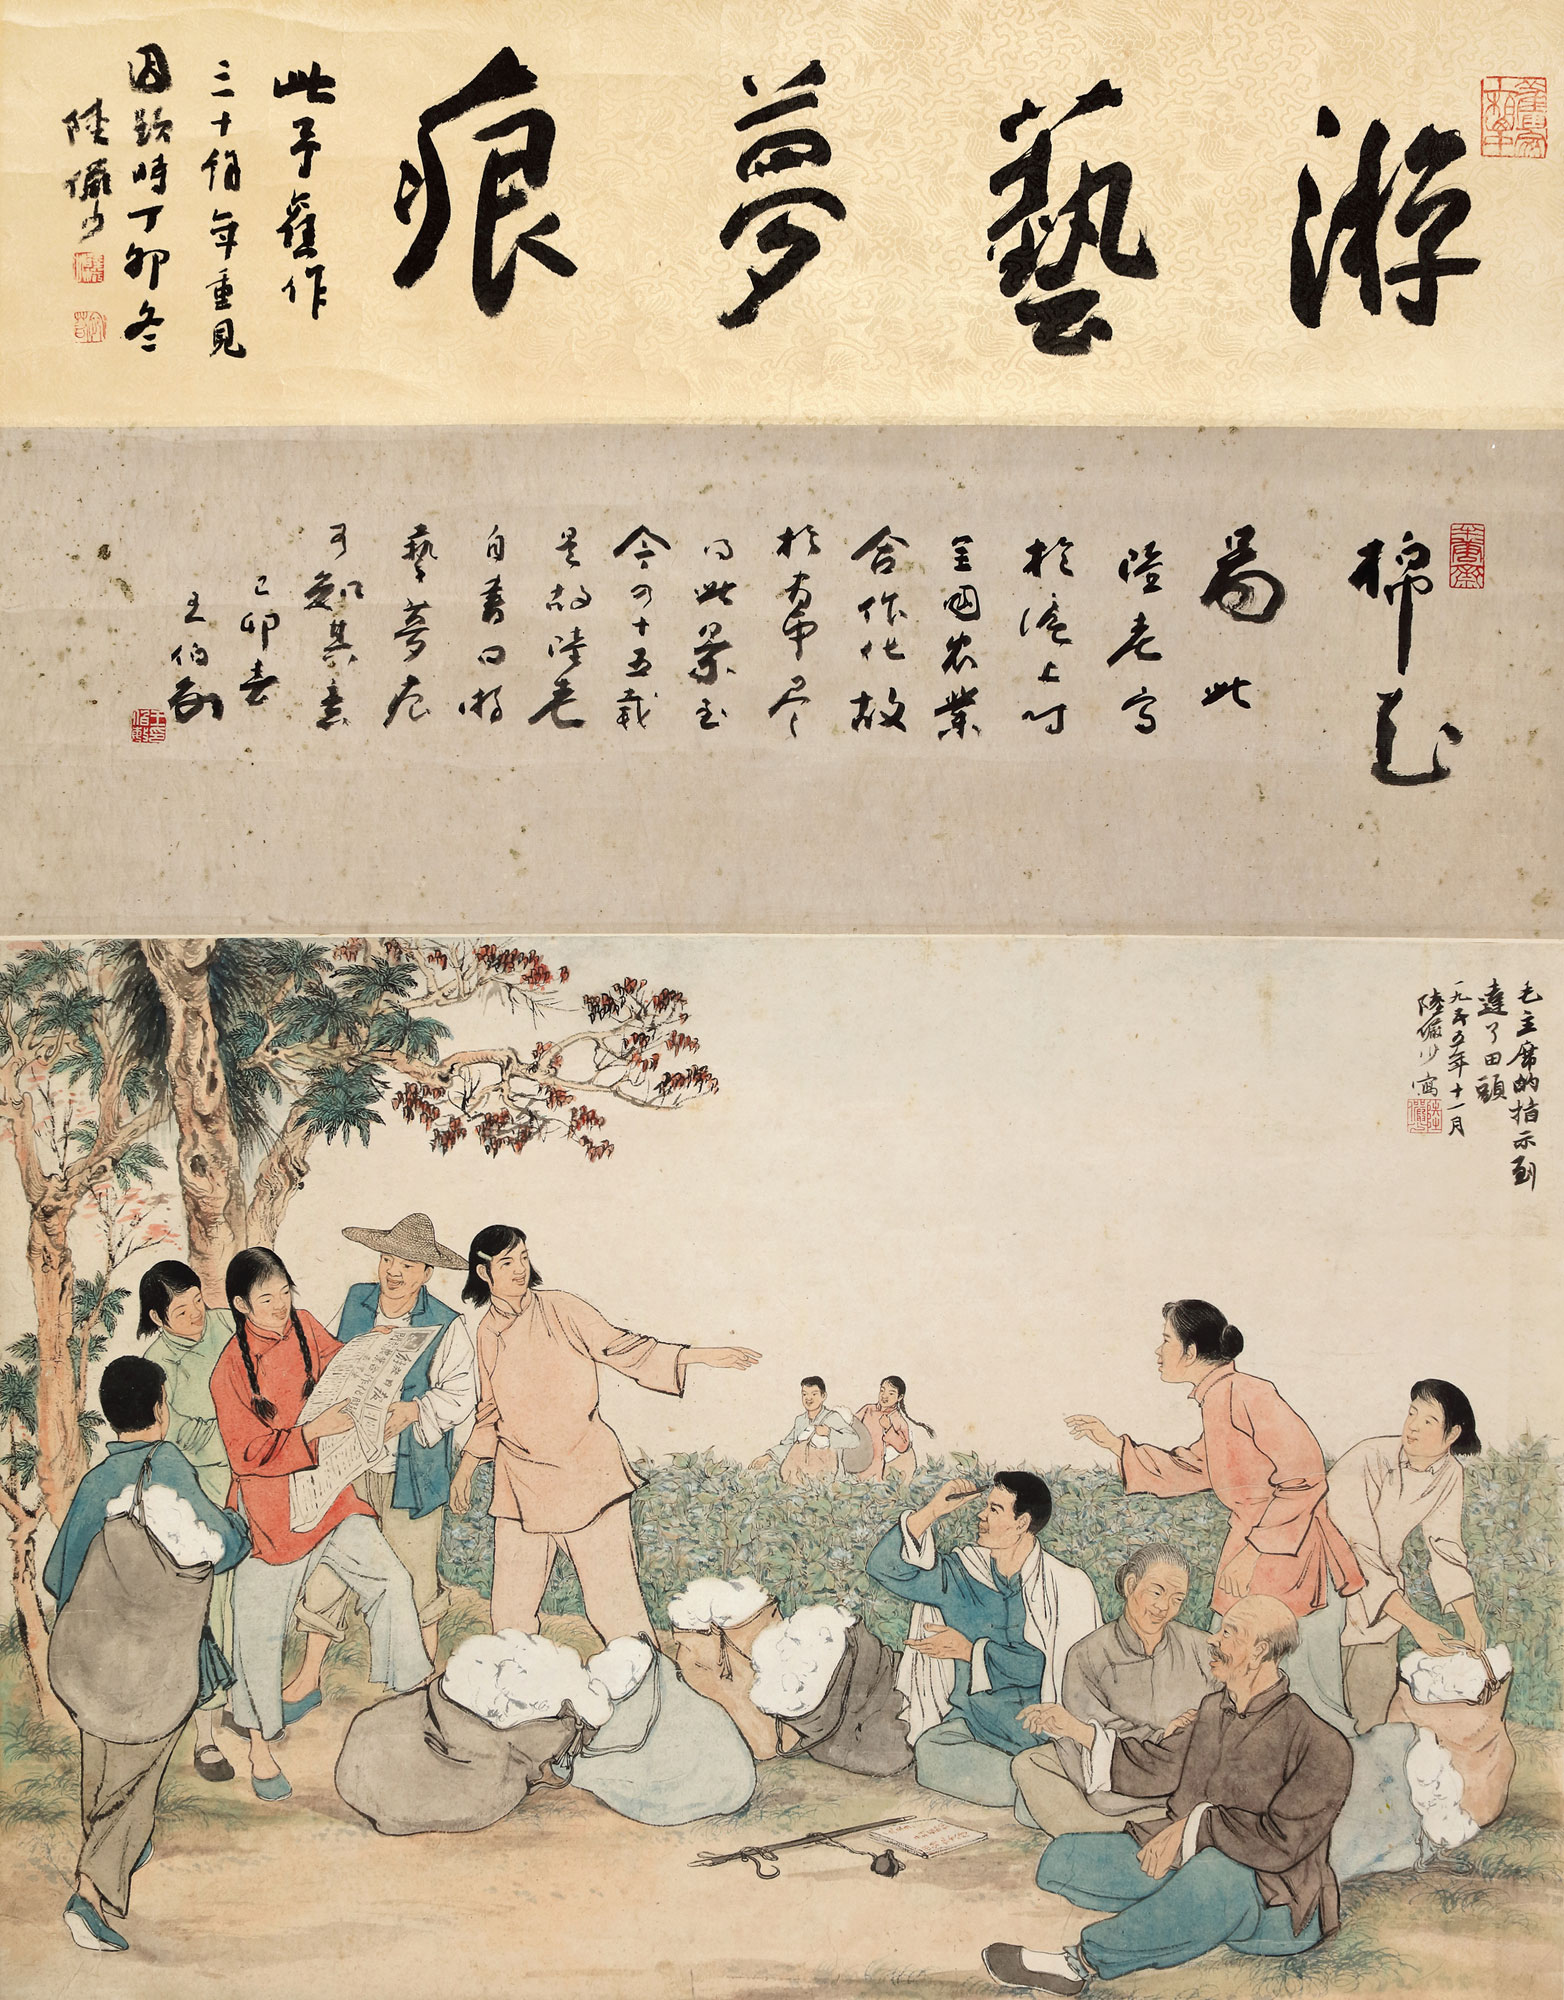 游藝夢痕
此予舊作
三十餘年重見
因題時丁卯冬
陸儼少
棉花
圖此
陸老寫
於滬上時
全國農業
合作化故
於
此景至
今四十五載
是故陸老
自書曰游
藝夢痕
可知其意
己卯春
王伯敏
毛主席的指示到
達了田頭
一九五五年十一月
陸儼少寫